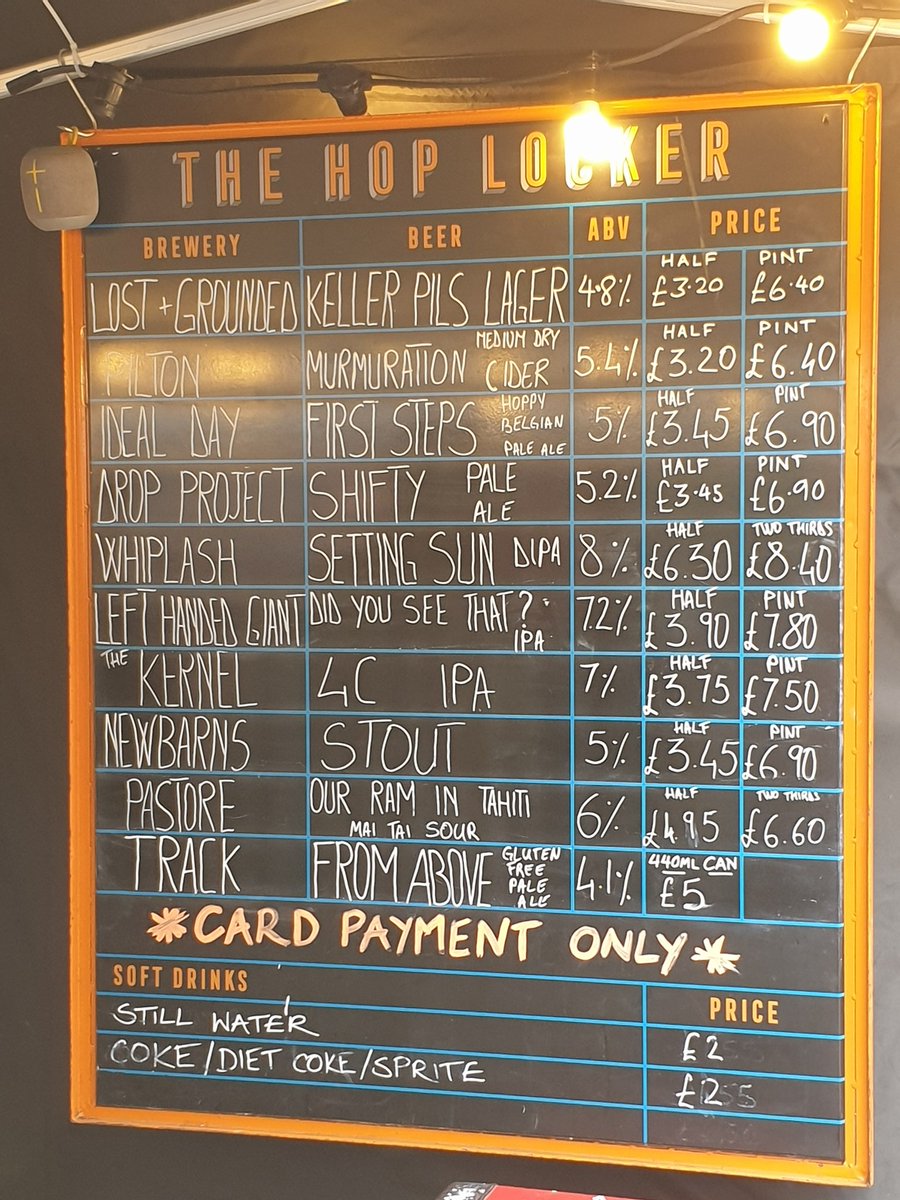 THE HOP LOCKER
BREWERY BEER ABV PRICE
LOST + GROUNDED KELLER PILS LAGER 4.8% HALF £3.20 PINT £6.40
PILTON MURMURATION MEDIUM DRY CIDER 5.4% HALF £3.20 PINT £6.40
IDEAL DAY FIRST STEPS HOPPY BELGIAN PALE ALE 5% HALF £3.45 PINT £6.90
DROP PROJECT SHIFTY PALE ALE 5.2% HALF £3.45 PINT £6.90
WHIPLASH SETTING SUN DIPA 8% HALF £6.30 TWO THIRDS £8.40
LEFT HANDED GIANT DID YOU SEE THAT? IPA 7.2% HALF £3.90 PINT £7.80
THE KERNEL 4C IPA 7% HALF £3.75 PINT £7.50
NEWBARNS STOUT 5% HALF £3.45 PINT £6.90
PASTORE OUR RAM IN TAHITI MAI TAI SOUR 6% HALF £4.95 TWO THIRDS £6.60
TRACK FROM ABOVE GLUTEN FREE PALE ALE 4.1% 440ML CAN £5
*CARD PAYMENT ONLY*
SOFT DRINKS PRICE
STILL WATER £2
COKE/DIET COKE/SPRITE £2